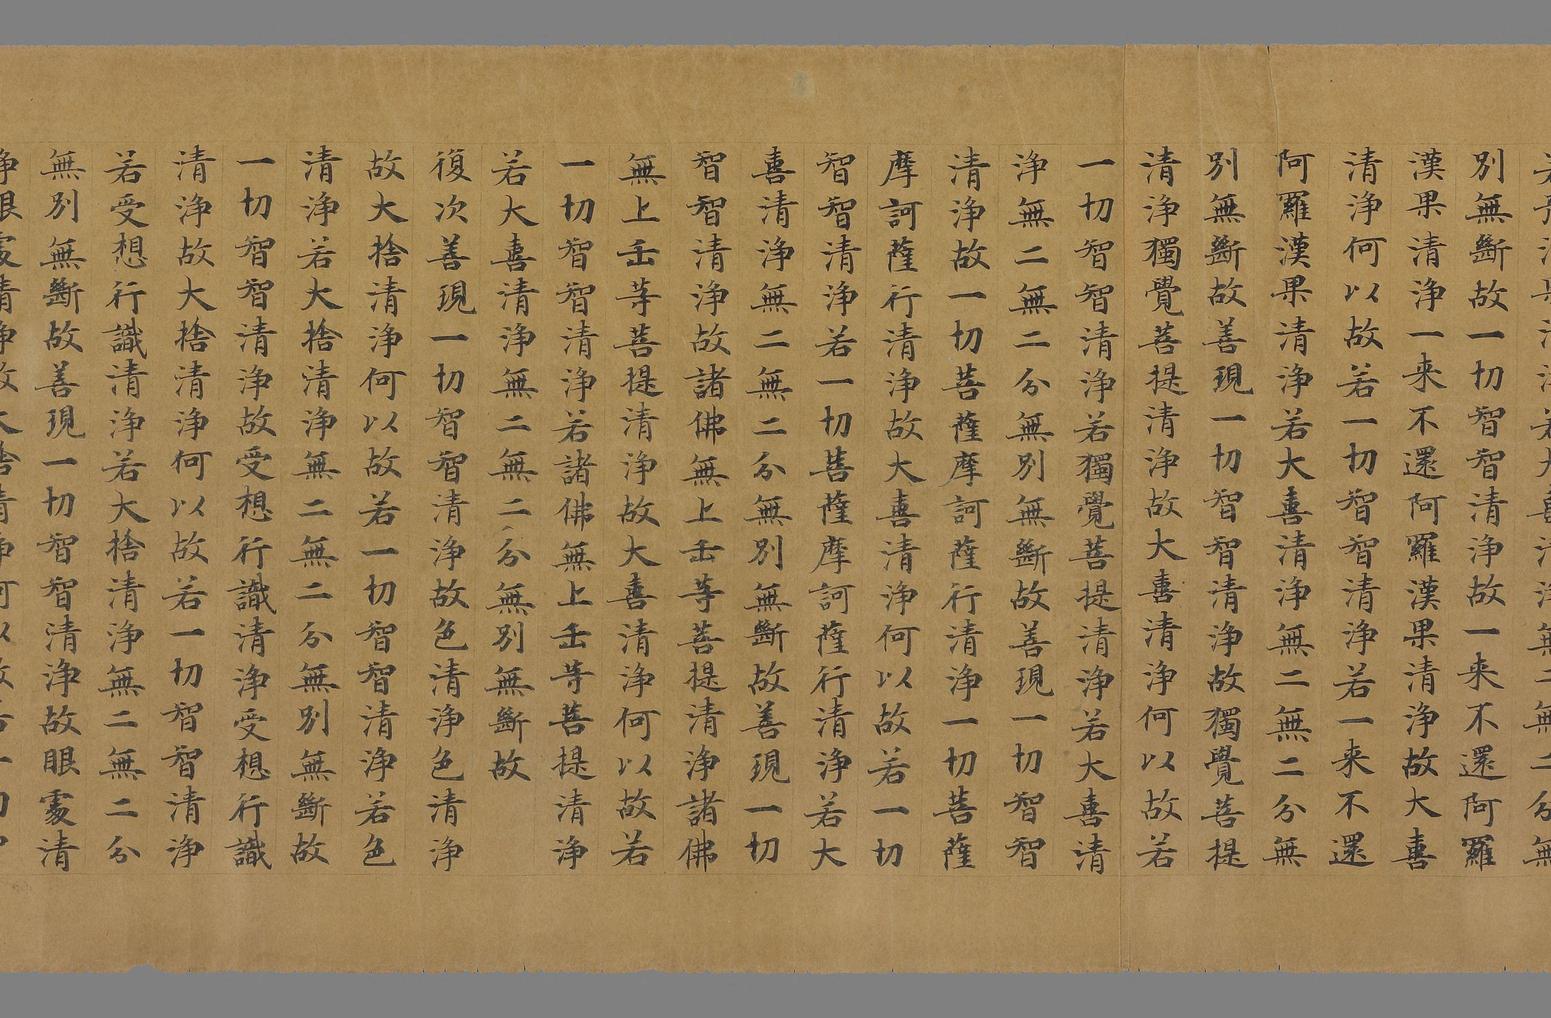 若預流果清浄若大喜清浄無二無二分無
別無斷故一切智智清浄故一来不還阿羅
漢果清浄一来不還阿羅漢果清浄故大喜
清浄何以故若一切智智清浄若一来不還
阿羅漢果清浄若大喜清浄無二無二分無
別無斷故善現一切智智清浄故獨覺菩提
清浄獨覺菩提清浄故大喜清浄何以故若
一切智智清浄若獨覺菩提清浄若大喜清
浄無二無二分無別無斷故善現一切智智
清浄故一切菩薩摩訶薩行清浄一切菩薩
摩訶薩行清浄故大喜清浄何以故若一切
智智清浄若一切菩薩摩訶薩行清浄若大
喜清浄無二無二分無別無斷故善現一切
智智清浄故諸佛無上正等菩提清浄諸佛
無上正等菩提清浄故大喜清浄何以故若
一切智智清浄若諸佛無上正等菩提清浄
若大喜清浄無二無二分無別無斷故
復次善現一切智智清浄故色清浄色清浄
故大捨清浄何以故若一切智智清浄若色
清浄若大捨清浄無二無二分無別無斷故
一切智智清浄故受想行識清浄受想行識
清浄故大捨清浄何以故若一切智智清浄
若受想行識清浄若大捨清浄無二無二分
無別無斷故善現一切智智清浄故眼處清
浄眼處清浄故大捨清浄何以故若一切智